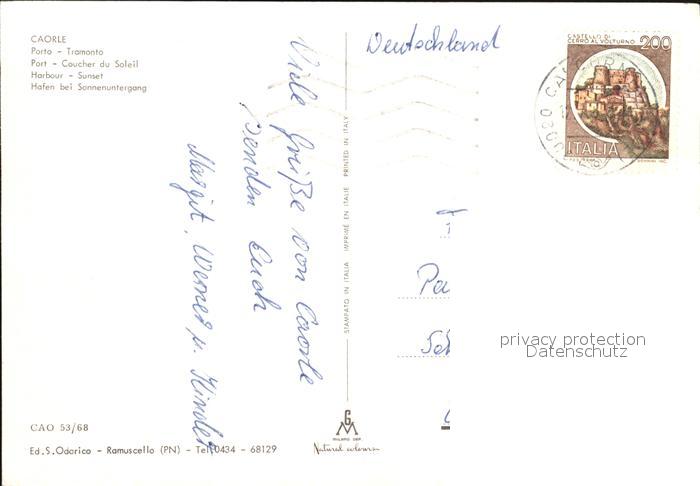 CAORLE
Porto - Tramonto
Port - Coucher du Soleil
Harbour - Sunset
Hafen bei Sonnenuntergang
Deutschland
CASTELLO DI
CERRO AL VOLTURNO 200
ITALIA
Viele Grüße von Caorle
senden Euch
Margit, Werner u. Kinder
STAMPATO IN ITALIA IMPRIMÉ EN ITALIE PRINTED IN ITALY
Pa
privacy protection
Datenschutz
CAO 53/68
Ed.S.Odorico - Ramuscello (PN) - Tel. 0434 - 68129
MILANO DEP.
Natural colours